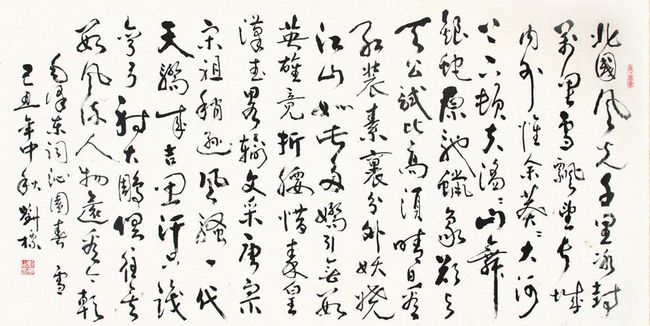 北國風光千里冰封
萬里雪飄望長城
内外惟余莽〻大河
上下頓失滔〻山舞
銀蛇原馳蠟象欲与
天公試比高須晴日看
红装素裹分外妖嬈
江山如此多嬌引無數
英雄竞折腰惜秦皇
漢武畧输文采唐宗
宋祖稍遜風騷一代
天驕成吉思汗只識
弯弓射大鵰俱往矣
数風流人物還看今朝
毛澤東詞沁園春 雪
己丑年中秋劉